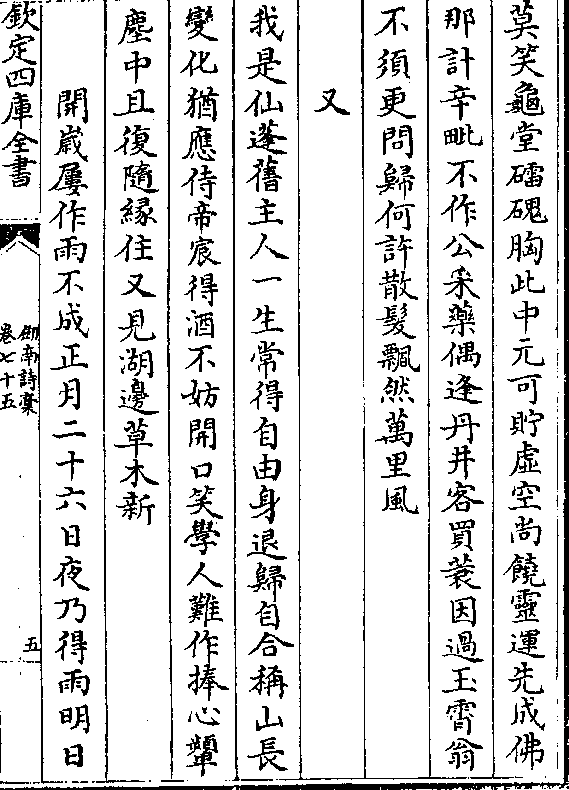 莫笑龜堂礌磈胸此中元可貯虛空尚饒靈運先成佛
那計辛毗不作公采藥偶逢丹井客買蓑因過玉霄翁
不須更問歸何許散髮飄然萬里風
又
我是仙蓬舊主人一生常得自由身退歸自合稱山長
變化猶應侍帝宸得酒不妨開口笑學人難作捧心顰
塵中且復隨緣住又見湖邊草木新
開嵗屢作雨不成正月二十六日夜乃得雨明日
欽定四庫全書
劒南詩稾
卷七十五
五